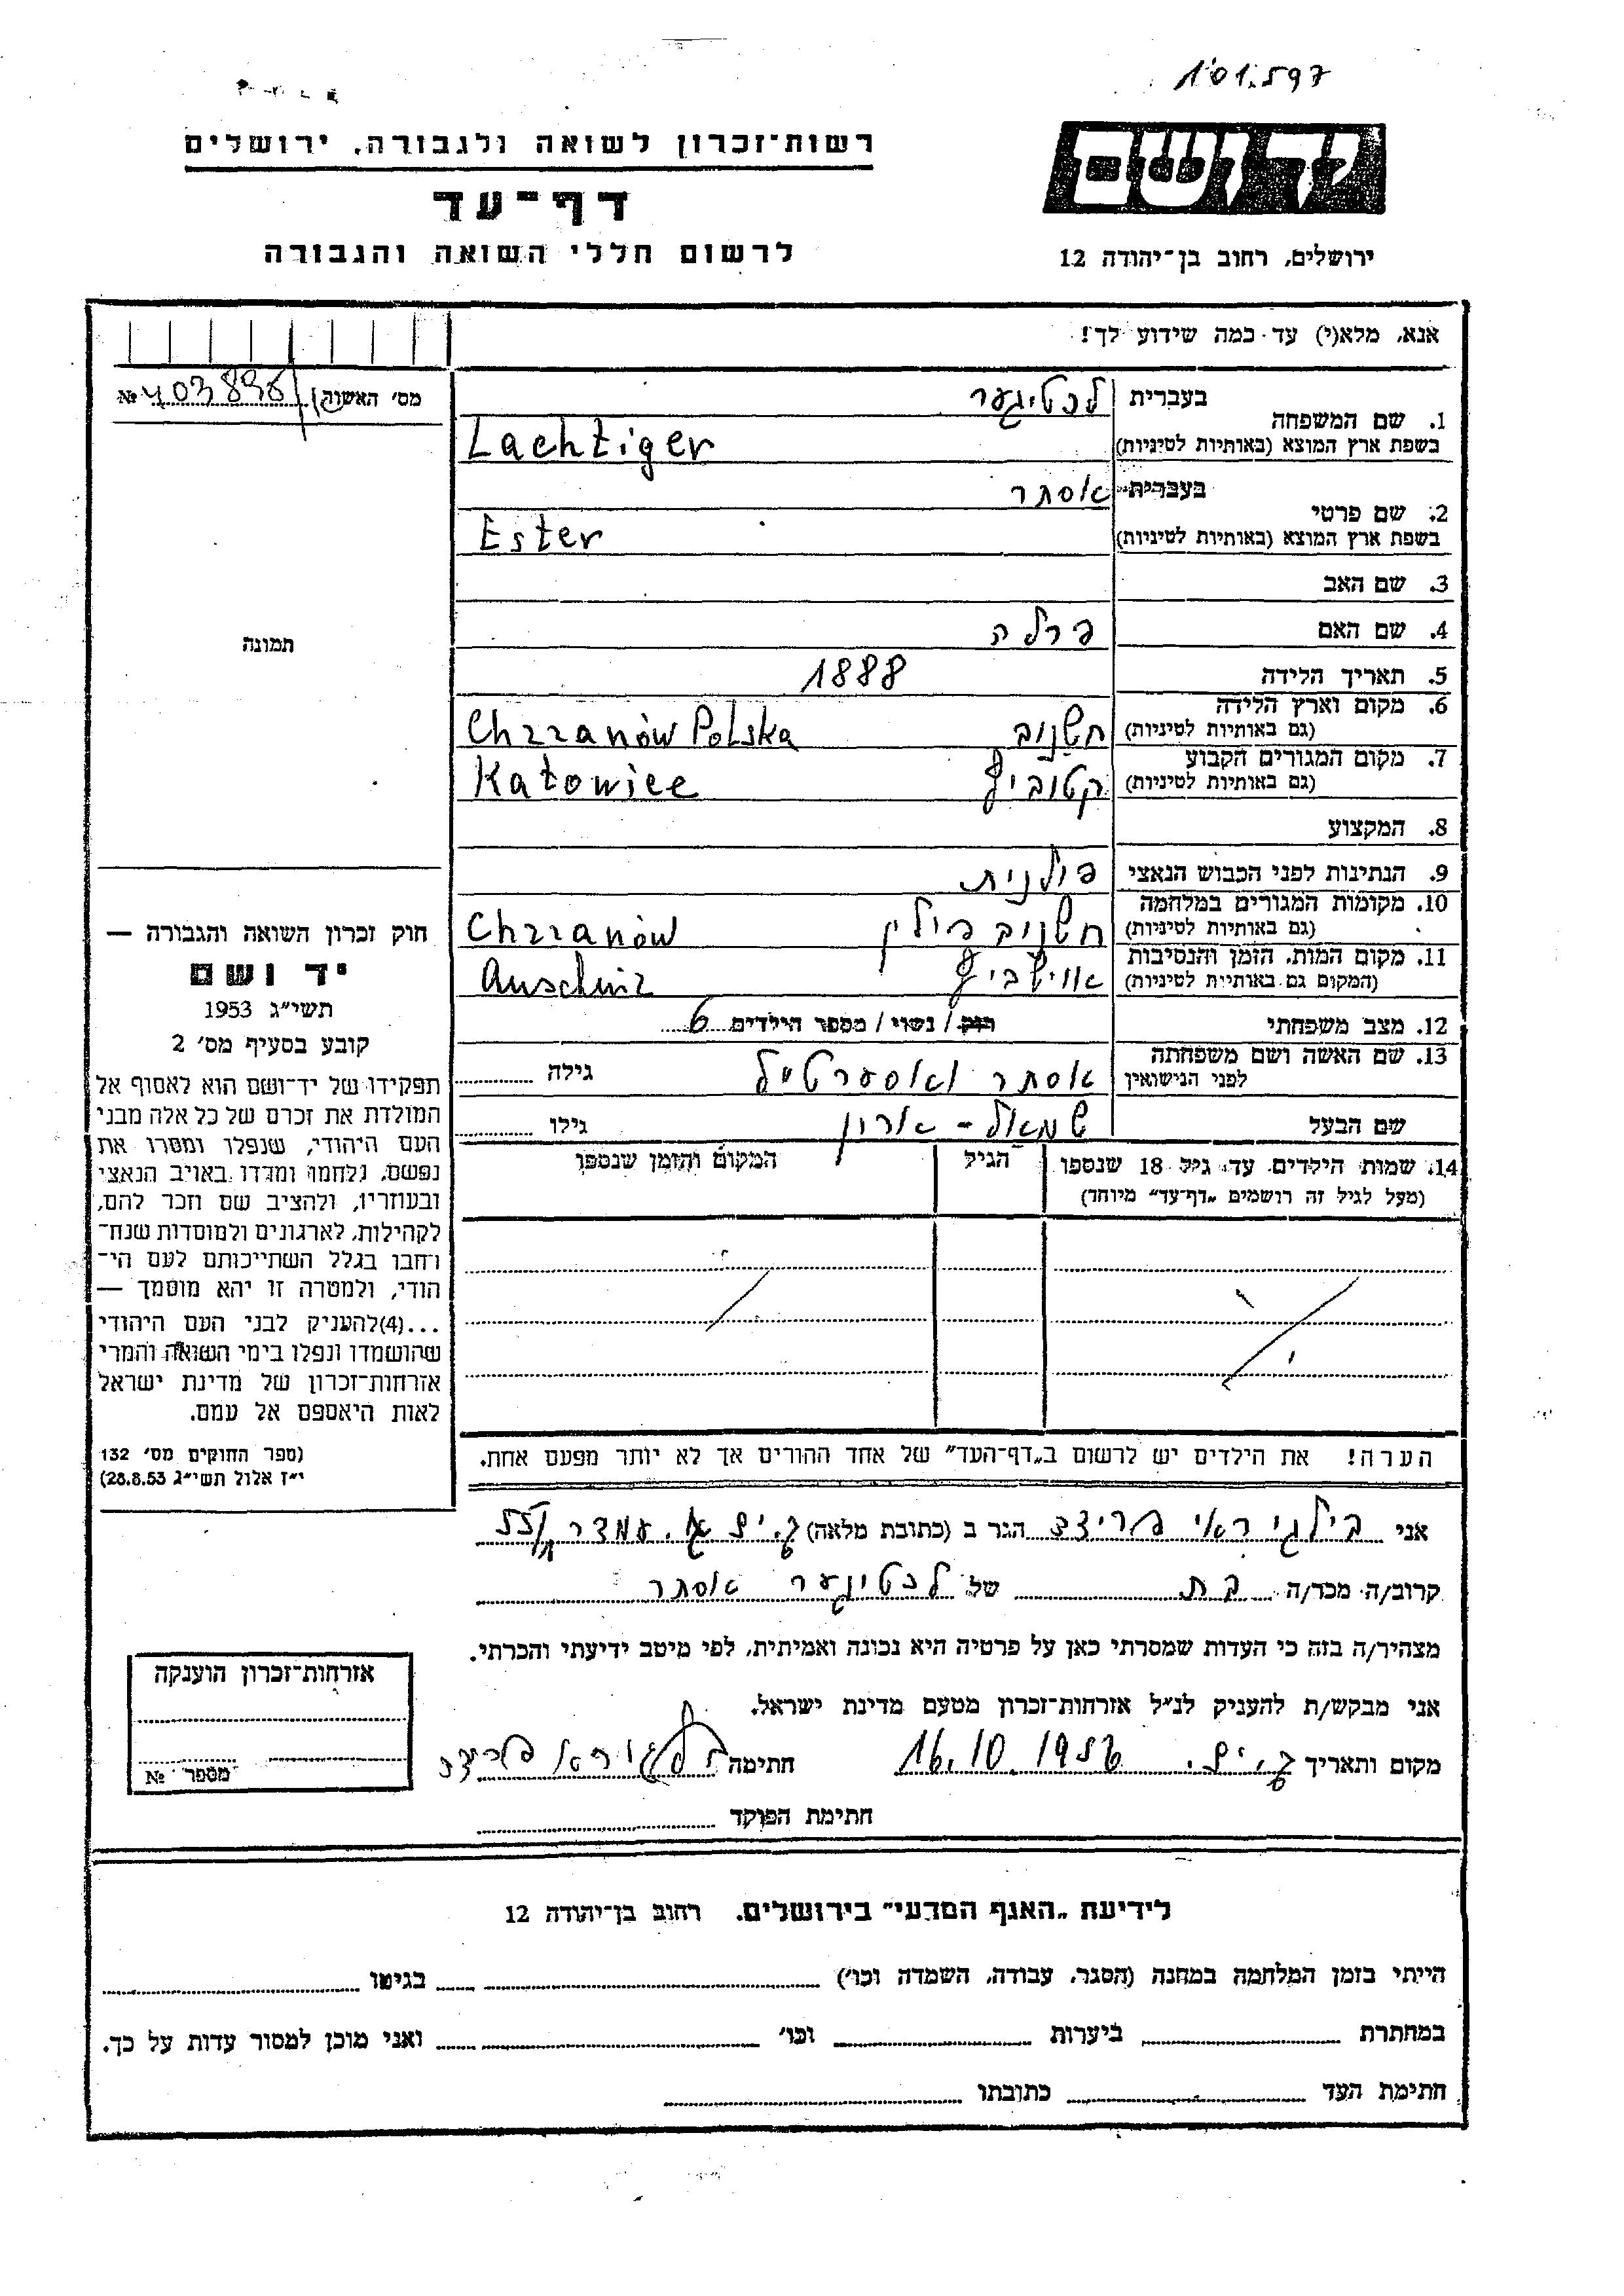 1'01.597
רשות־זכרון לשואה ולגבורה, ירושלים
דף־עד
לרשום חללי השואה והגבורה
ידושם
ירושלים, רחוב בן־יהודה 12
אנא, מלא(י) עד כמה שידוע לך!
מס׳ האשה № 403896
1. שם המשפחה
בעברית לכטיגער
בשפת ארץ המוצא (באותיות לטיניות) Lachtiger
2. שם פרטי
בעברית אסתר
בשפת ארץ המוצא (באותיות לטיניות) Ester
3. שם האב
4. שם האם פרלה
5. תאריך הלידה 1888
6. מקום וארץ הלידה
(גם באותיות לטיניות) חשנוב Chrzanów Polska
7. מקום המגורים הקבוע
(גם באותיות לטיניות) קטוביץ Katowice
8. המקצוע
9. הנתינות לפני הכבוש הנאצי פולנית
10. מקומות המגורים במלחמה
(גם באותיות לטיניות) חשנוב פולין Chrzanów
11. מקום המות, הזמן והנסיבות
(המקום גם באותיות לטיניות) אוישביץ Auschwiz
12. מצב משפחתי רוק / נשוי / מספר הילדים 6
13. שם האשה ושם משפחתה
לפני הנישואין אסתר וואסערטייל גילה
שם הבעל שמואל - אהרון גילו
14. שמות הילדים עד גיל 18 שנספו הגיל המקום והזמן שנספו
(מעל לגיל זה רושמים „דף־עד״ מיוחד)
תמונה
חוק זכרון השואה והגבורה —
יד ושם
תשי״ג 1953
קובע בסעיף מס׳ 2
תפקידו של יד־ושם הוא לאסוף אל
המולדת את זכרם של כל אלה מבני
העם היהודי, שנפלו ומסרו את
נפשם, נלחמו ומרדו באויב הנאצי
ובעוזריו, ולהציב שם וזכר להם,
לקהילות, לארגונים ולמוסדות שנח־
רבו בגלל השתייכותם לעם הי־
הודי, ולמטרה זו יהא מוסמך —
...(4) להעניק לבני העם היהודי
שהושמדו ונפלו בימי השואה והמרי
אזרחות־זכרון של מדינת ישראל
לאות היאספם אל עמם.
(ספר החוקים מס׳ 132
י״ז אלול תשי״ג 28.8.53)
הערה! את הילדים יש לרשום ב„דף־העד״ של אחד ההורים אך לא יותר מפעם אחת.
אני פרידה הגר ב (כתובת מלאה)
קרוב/ה מכר/ה בת של לכטיגער אסתר
מצהיר/ה בזה כי העדות שמסרתי כאן על פרטיה היא נכונה ואמיתית, לפי מיטב ידיעתי והכרתי.
אני מבקש/ת להעניק לנ״ל אזרחות־זכרון מטעם מדינת ישראל.
מקום ותאריך 16.10.1956 חתימה
חתימת הפוקד
אזרחות־זכרון הוענקה
מספר №
לידיעת „האגף המדעי״ בירושלים, רחוב בן־יהודה 12
הייתי בזמן המלחמה במחנה (הסגר, עבודה, השמדה וכו׳) בגיטו
במחתרת ביערות וכו׳ ואני מוכן למסור עדות על כך.
חתימת העד כתובתו